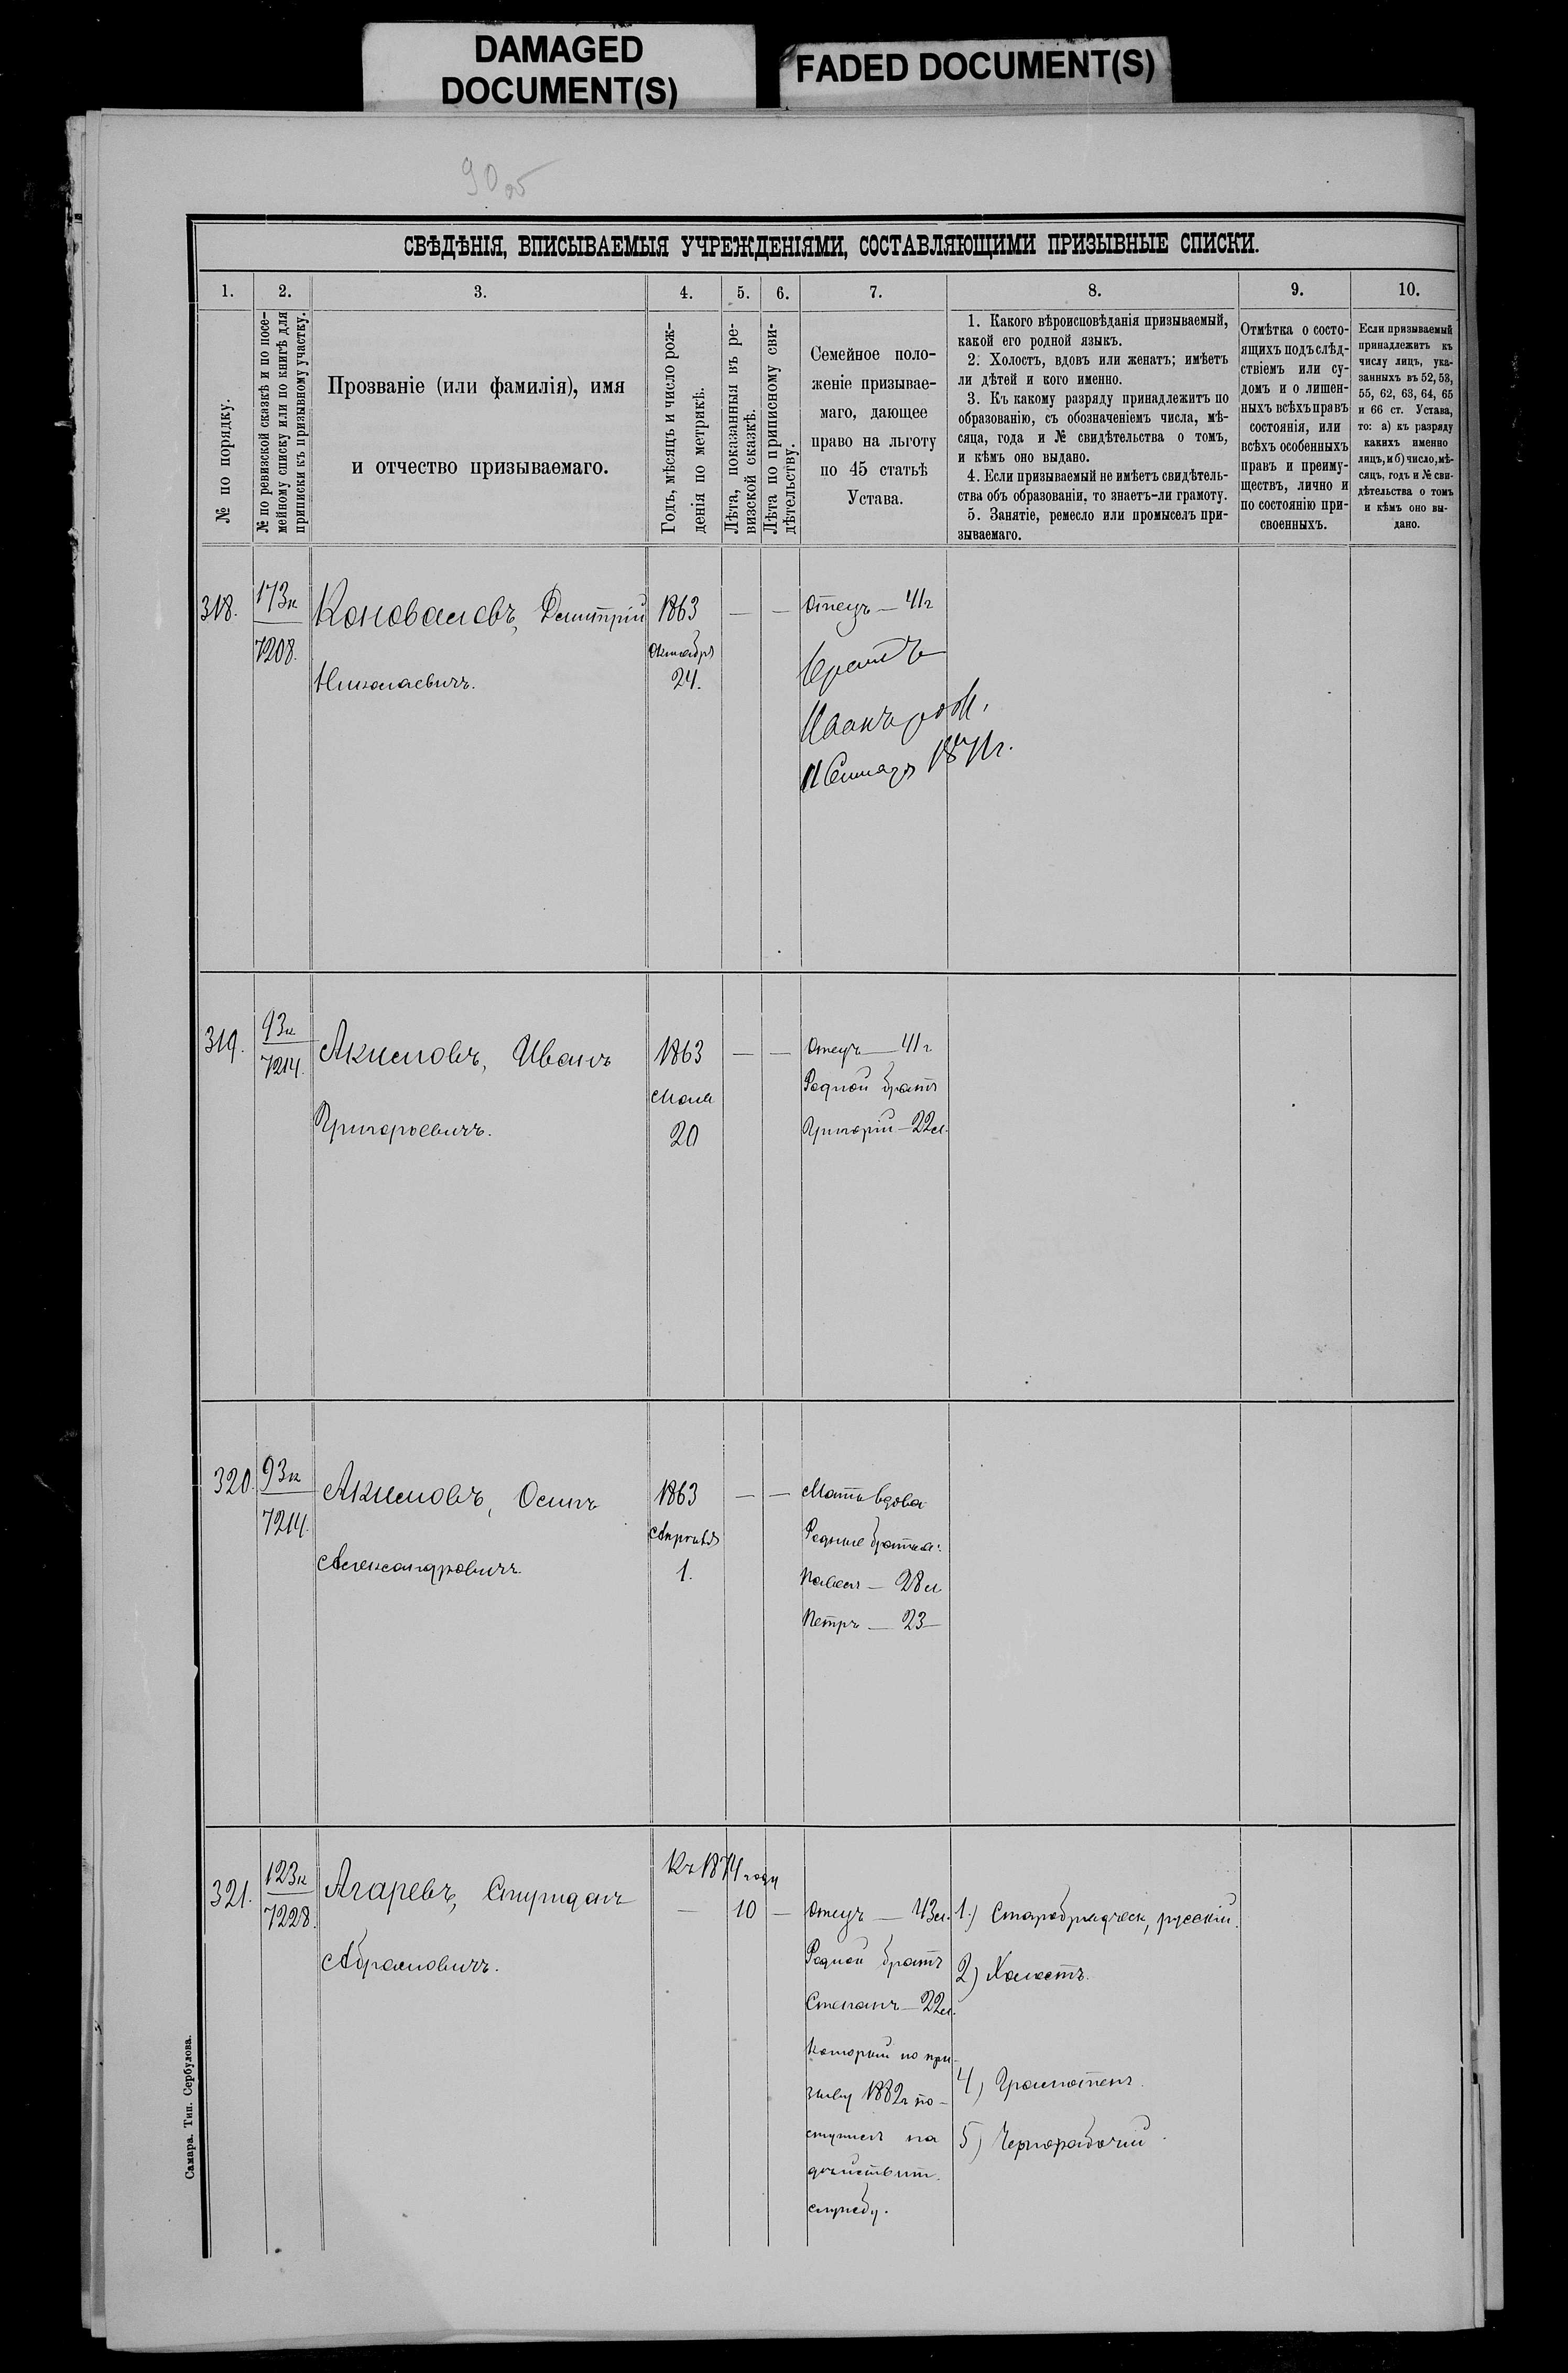 DAMAGED
DOCUMENT(S)
FADED DOCUMENT(S)
90 об
СВѢДѢНІЯ, ВПИСЫВАЕМЫЯ УЧРЕЖДЕНІЯМИ, СОСТАВЛЯЮЩИМИ ПРИЗЫВНЫЕ СПИСКИ.
1. 2. 3. 4. 5. 6. 7. 8. 9. 10.
№ по порядку.
№ по ревизской сказкѣ и по посе-
мейному списку или по книгѣ для
приписки къ призывному участку.
Прозваніе (или фамилія), имя
и отчество призываемаго.
Годъ, мѣсяцъ и число рож-
денія по метрикѣ.
Лѣта, показанныя въ ре-
визской сказкѣ.
Лѣта по приписному сви-
дѣтельству.
Семейное поло-
женіе призывае-
маго, дающее
право на льготу
по 45 статьѣ
Устава.
1. Какого вѣроисповѣданія призываемый,
какой его родной языкъ.
2. Холостъ, вдовъ или женатъ; имѣетъ
ли дѣтей и кого именно.
3. Къ какому разряду принадлежитъ по
образованію, съ обозначеніемъ числа, мѣ-
сяца, года и № свидѣтельства о томъ,
и кѣмъ оно выдано.
4. Если призываемый не имѣетъ свидѣтель-
ства объ образованіи, то знаетъ-ли грамоту.
5. Занятіе, ремесло или промыселъ при-
зываемаго.
Отмѣтка о состо-
ящихъ подъ слѣд-
ствіемъ или су-
домъ и о лишен-
ныхъ всѣхъ правъ
состоянія, или
всѣхъ особенныхъ
правъ и преиму-
ществъ, лично и
по состоянію при-
своенныхъ.
Если призываемый
принадлежитъ къ
числу лицъ, ука-
занныхъ въ 52, 53,
55, 62, 63, 64, 65
и 66 ст. Устава,
то: а) къ разряду
какихъ именно
лицъ, и б) число, мѣ-
сяцъ, годъ и № сви-
дѣтельства о томъ
и кѣмъ оно вы-
дано.
318.
173к
7208.
Коноваловъ, Дмитрій
Николаевичъ.
1863
Октября
24.
— —
Отецъ — 41г
братъ
Иванъ род.
11 Генваря 1871г.
319.
93к
7214.
Акимовъ, Иванъ
Григорьевичъ.
1863
Мая
20
— —
Отецъ — 41г
Родной братъ
Григорій — 22л.
320.
93к
7214.
Акимовъ, Осипъ
Александровичъ.
1863
Апрѣля
1.
— —
Мать вдова
Родные братья:
Павелъ — 28л
Петръ — 23 —
321.
123к
7228.
Агаревъ, Спиридонъ
Абрамовичъ.
Къ 1874 году
— 10 —
Отецъ — 43л.
Родной братъ
Степанъ — 22л.
который по при-
зыву 1882г по-
ступилъ на
дѣйствит.
службу.
1.) Старобрядческ., русскій.
2) Холостъ.
4) Грамотенъ.
5) Чернорабочій.
Самара. Тип. Сербулова.